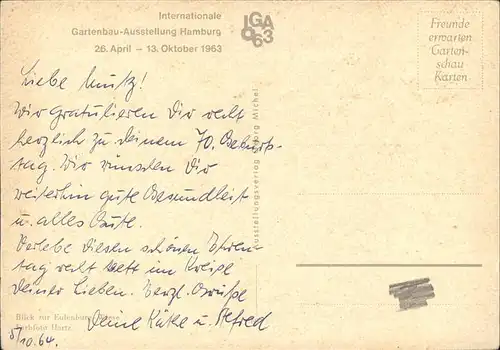 Internationale
Gartenbau-Ausstellung Hamburg
26. April – 13. Oktober 1963
IGA
63
Freunde
erwarten
Garten-
schau
Karten
Liebe !
Wir gratulieren Dir recht
herzlich zu deinem 70. Geburts-
tag. Wir wünschen Dir
weiterhin gute Gesundheit
u. alles Gute.
Verlebe diesen schönen Ehren-
tag recht nett im Kreise
Deiner Lieben. Herzl. Grüße
Deine Käthe u. Alfred
Blick zur Eulenburg
Farbfoto Hartz
5/10.64.
Ausstellungsverlag Georg Michel